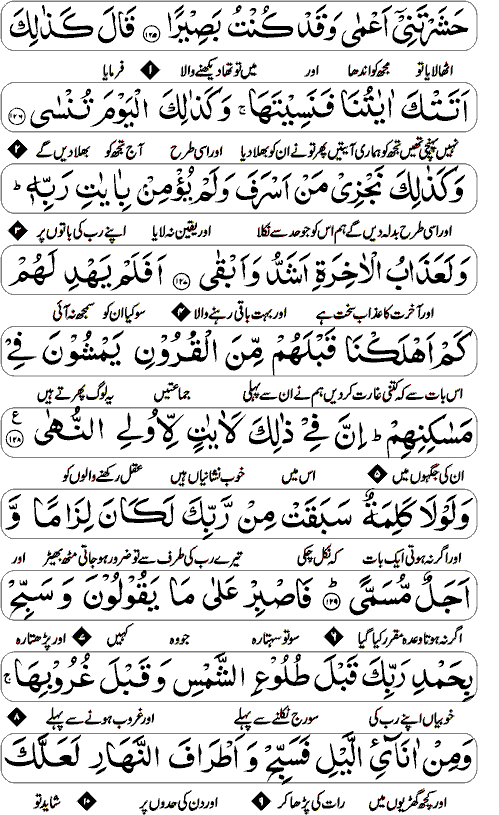 حَشَرْتَنِیْۤ اَعْمٰى وَقَدْ كُنْتُ بَصِیْرًا ﴿۱۲۵﴾ قَالَ كَذٰلِكَ
اٹھا لایا تو مجھ کو اندھا اور میں تو تھا دیکھنے والا ۱ فرمایا
اَتَتْكَ اٰیٰتُنَا فَنَسِیْتَهَا ۚ وَكَذٰلِكَ الْیَوْمَ تُنْسٰى ﴿۱۲۶﴾
نہیں پہنچی تھیں تجھ کو ہماری آیتیں پھر تو نے ان کو بھلا دیا اور اسی طرح آج تجھ کو بھلا دیں گے ۲
وَكَذٰلِكَ نَجْزِیْ مَنْ اَسْرَفَ وَلَمْ یُؤْمِنْۢ بِاٰیٰتِ رَبِّهٖ ؕ
اور اسی طرح بدلہ دیں گے ہم اس کو جو حد سے نکلا اور یقین نہ لایا اپنے رب کی باتوں پر ۳
وَلَعَذَابُ الْاٰخِرَةِ اَشَدُّ وَاَبْقٰى ﴿۱۲۷﴾ اَفَلَمْ یَهْدِ لَهُمْ
اور آخرت کا عذاب سخت ہے اور بہت باقی رہنے والا ۴ سو کیا ان کو سمجھ نہ آئی
كَمْ اَهْلَكْنَا قَبْلَهُمْ مِّنَ الْقُرُوْنِ یَمْشُوْنَ فِیْ
اس بات سے کہ کتنی غارت کر دیں ہم نے ان سے پہلی جماعتیں یہ لوگ پھرتے ہیں
مَسٰكِنِهِمْ ؕ اِنَّ فِیْ ذٰلِكَ لَاٰیٰتٍ لِّاُولِی النُّهٰى ﴿۱۲۸﴾ ع
ان کی جگہوں میں ۵ اس میں خوب نشانیاں ہیں عقل رکھنے والوں کو
وَلَوْلَا كَلِمَةٌ سَبَقَتْ مِنْ رَّبِّكَ لَكَانَ لِزَامًا وَّ
اور اگر نہ ہوتی ایک بات کہ نکل چکی تیرے رب کی طرف سے تو ضرور ہو جاتی مٹھ بھیڑ اور
اَجَلٌ مُّسَمًّى ﴿۱۲۹﴾ فَاصْبِرْ عَلٰى مَا یَقُوْلُوْنَ وَسَبِّحْ
اگر نہ ہوتا وعدہ مقرر کیا گیا ۶ سو تو سہتا رہ جو وہ کہیں ۷ اور پڑھتا رہ
بِحَمْدِ رَبِّكَ قَبْلَ طُلُوْعِ الشَّمْسِ وَقَبْلَ غُرُوْبِهَا ۚ
خوبیاں اپنے رب کی سورج نکلنے سے پہلے اور غروب ہونے سے پہلے ۸
وَمِنْ اٰنَآئِ الَّیْلِ فَسَبِّحْ وَاَطْرَافَ النَّهَارِ لَعَلَّكَ
اور کچھ گھڑیوں میں رات کی پڑھا کر ۹ اور دن کی حدوں پر ۱۰ شاید تو